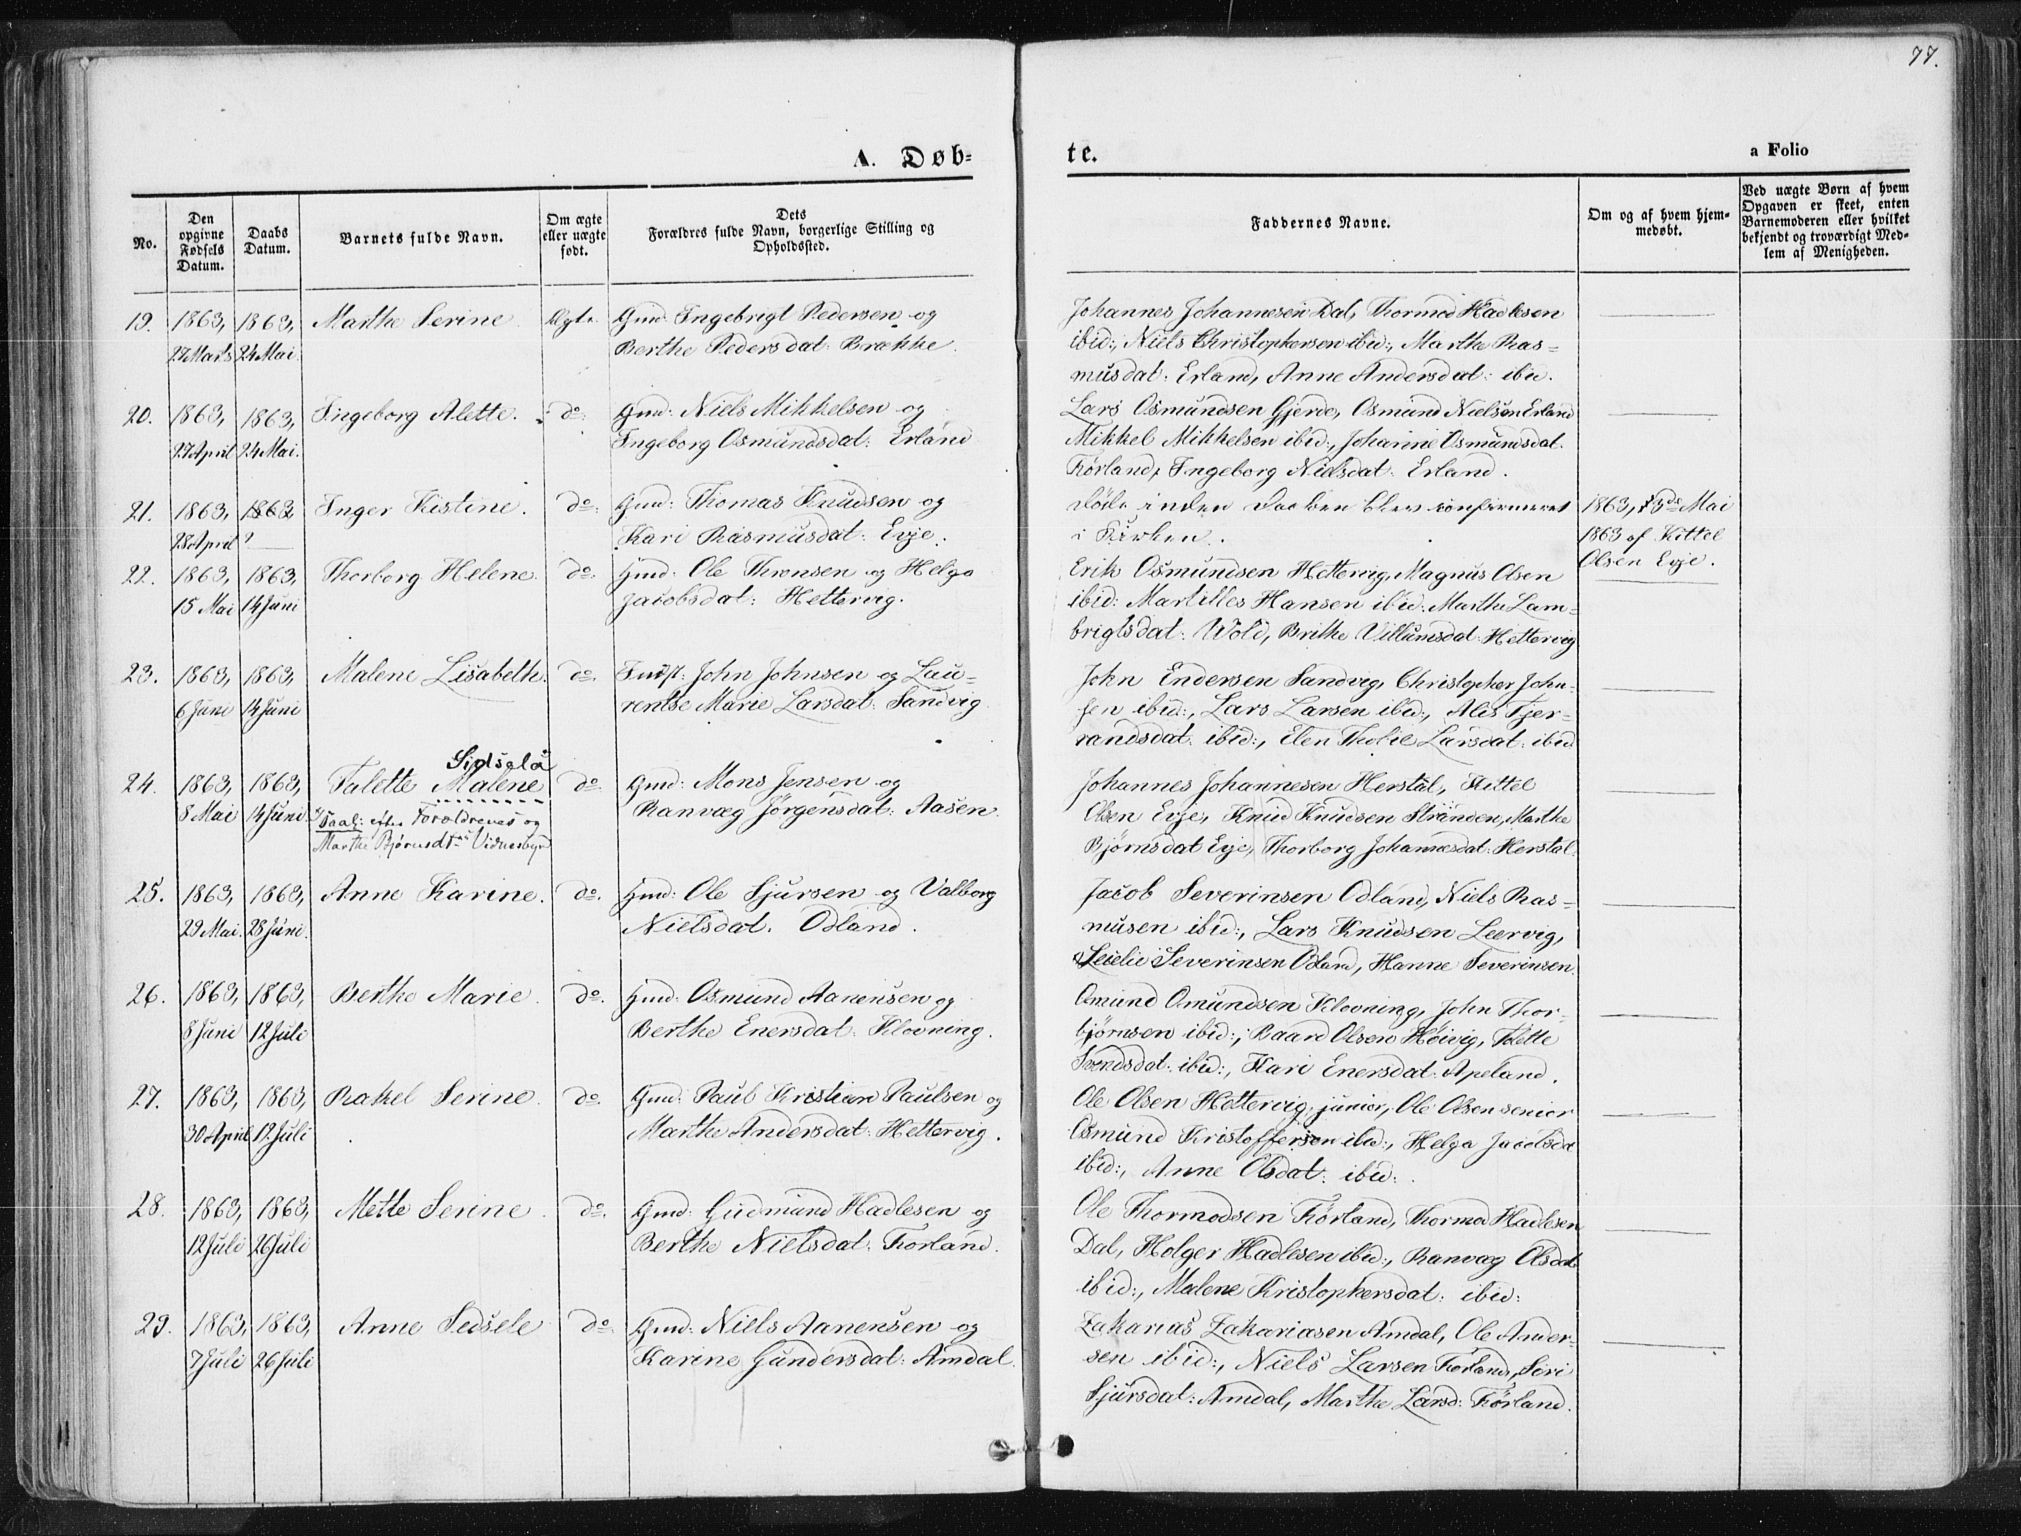 77.
A. Døb-
te.
a Folio
No.
Den opgivne Fødsels Datum.
Daabs Datum.
Barnets fulde Navn.
Om ægte eller uægte født.
Dets Forældres fulde Navn, borgerlige Stilling og Opholdssted.
Faddernes Navne.
Om og af hvem hjem-medøbt.
Ved uægte Børn af hvem Opgaven er skeet, enten Barnemoderen eller hvilket bekjendt og troværdigt Med-lem af Menigheden.
19. 1863, 1863, Marthe Serine Ægte. Gmd: Ingebrigt Pedersen og
27 Marts 24 Mai. Berthe Pedersdat: Brække.
Johannes Johannesen Dal, Thormod Hadlesen
ibid:, Niels Christophersen ibid:, Marthe Ras-
musdat: Erland, Anne Andersdat: ibid.
20. 1863, 1863, Ingeborg Alette. do: Gmd: Niels Mikkelsen og
27 April 24 Mai. Ingeborg Osmundsdat: Erland
Lars Osmundsen Gjerde, Osmund Nielsen Erland
Mikkel Mikkelsen ibid:, Johanne Osmundsdat.
Førland, Ingeborg Nielsdat: Erland.
21. 1863, 1863 Inger Kistine. do: Gmd: Thomas Knudsen og
28 April ? Kari Rasmusdat: Evje.
Døde inden Daaben blev confirmeret
i Kirken.
1863, Mai
1863 af Kittel
Olsen Evje.
22. 1863, 1863, Thorborg Helene. do: Gmd: Ole Thronsen og Helga
15 Mai 14 Juni Jacobsdat: Hettervig.
Erik Osmundsen Hettervig, Magnus Olsen
ibid: Martilles Hansen ibid: Marthe Lam-
brigtsdat: Wold, Brithe Villumsdat: Hettervig
23. 1863, 1863, Malene Lisabeth. do. Indst: John Johnsen og Lau-
6 Juni 14 Juni rentse Marie Larsdat: Sandvig.
John Endersen Sandvig, Christopher John-
sen ibid:, Lars Larsen ibid:, Alis Tjer-
randsdat: ibid:, Elen Tholie Larsdat: ibid
Sidsela
24. 1863, 1863, Talette Malene do. Gmd: Mons Jensen og
8 Mai 14 Juni Ranvæg Jørgensdat: Aasen.
Saal: efter Forældrenes og
Marthe Bjørnsdtrs Vidnesbyrd
Johannes Johannesen Herstal, Kittel
Olsen Evje, Knud Knudsen Stranden, Marthe
Bjørnsdat Evje, Thorborg Johannesdat: Herstal.
25. 1863, 1863, Anne Karine. do. Gmd: Ole Sjursen og Valborg
29 Mai. 28 Juni. Nielsdat. Odland.
Jacob Severinsen Odland, Niels Ras-
musen ibid:, Lars Knudsen Leervig,
Severinsen Odland, Hanne Severinsen.
26. 1863, 1863, Berthe Marie. do. Gmd: Osmund Aanensen og
8 Juni 12 Juli Berthe Enersdat: Klovning.
Omund Omundsen Klovning, John Thor-
bjørnsen ibid:, Baard Olsen Høivig, Mette
Svendsdat: ibid:, Kari Enersdat: Apeland.
27. 1863, 1863, Rakel Serine. do. Gmd: Paul Kristian Paulsen og
30 April 12 Juli Marthe Andersdat: Hettervig.
Ole Olsen Hettervig, junior, Ole Olsen senior
Osmund Kristoffersen ibid:, Helga Jacobsdt
ibid:, Anne Olsdat: ibid:
28. 1863, 1863, Mette Serine. do. Gmd: Gudmund Hadlesen og
12 Juli 26 Juli Berthe Nielsdat: Førland.
Ole Thormodsen Førland, Thormod Hadlesen
Dal, Holger Hadlesen ibid:, Ranvæg Olsdat
ibid:, Malene Kristophersdat: ibid:
29. 1863, 1863, Anne Sedsele do Gmd: Niels Aanensen og
7 Juli 26 Juli Karine Gundersdat: Amdal.
Zakarias Zakariasen Amdal, Ole Ander-
sen ibid:, Niels Larsen Førland, Siri
Sjursdat: Amdal, Marthe Larsd: Førland.